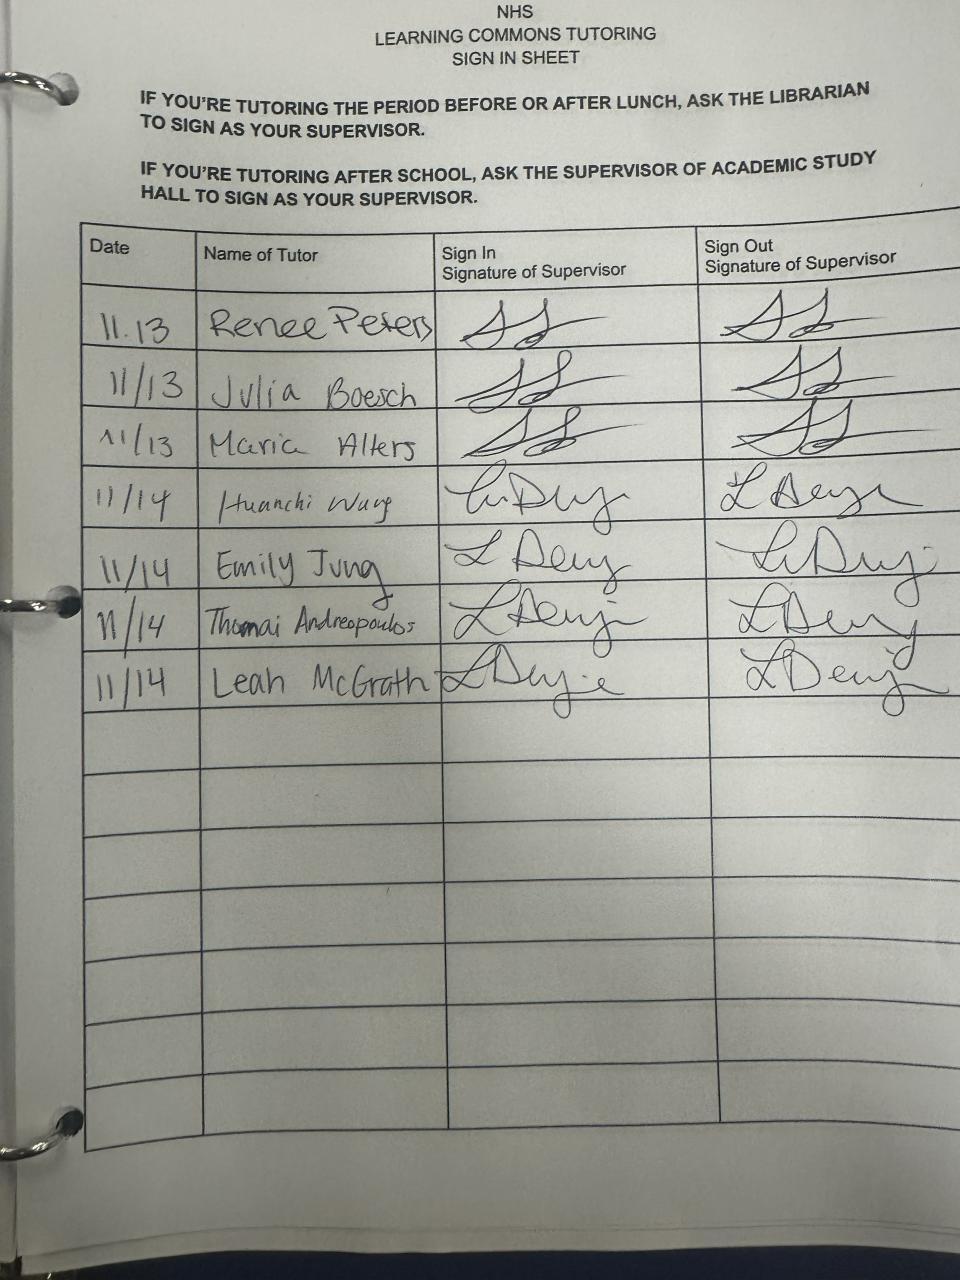 NHS
LEARNING COMMONS TUTORING
SIGN IN SHEET
IF YOU'RE TUTORING THE PERIOD BEFORE OR AFTER LUNCH, ASK THE LIBRARIAN
TO SIGN AS YOUR SUPERVISOR.
IF YOU'RE TUTORING AFTER SCHOOL, ASK THE SUPERVISOR OF ACADEMIC STUDY
HALL TO SIGN AS YOUR SUPERVISOR.
Date Name of Tutor Sign In Sign Out
Signature of Supervisor Signature of Supervisor
11.13 Renee Peters
11/13 Julia Boesch
11/13 Maria Alters
11/14 Huanchi Wang
11/14 Emily Jung
11/14 Thomai Andreopoulos
11/14 Leah McGrath